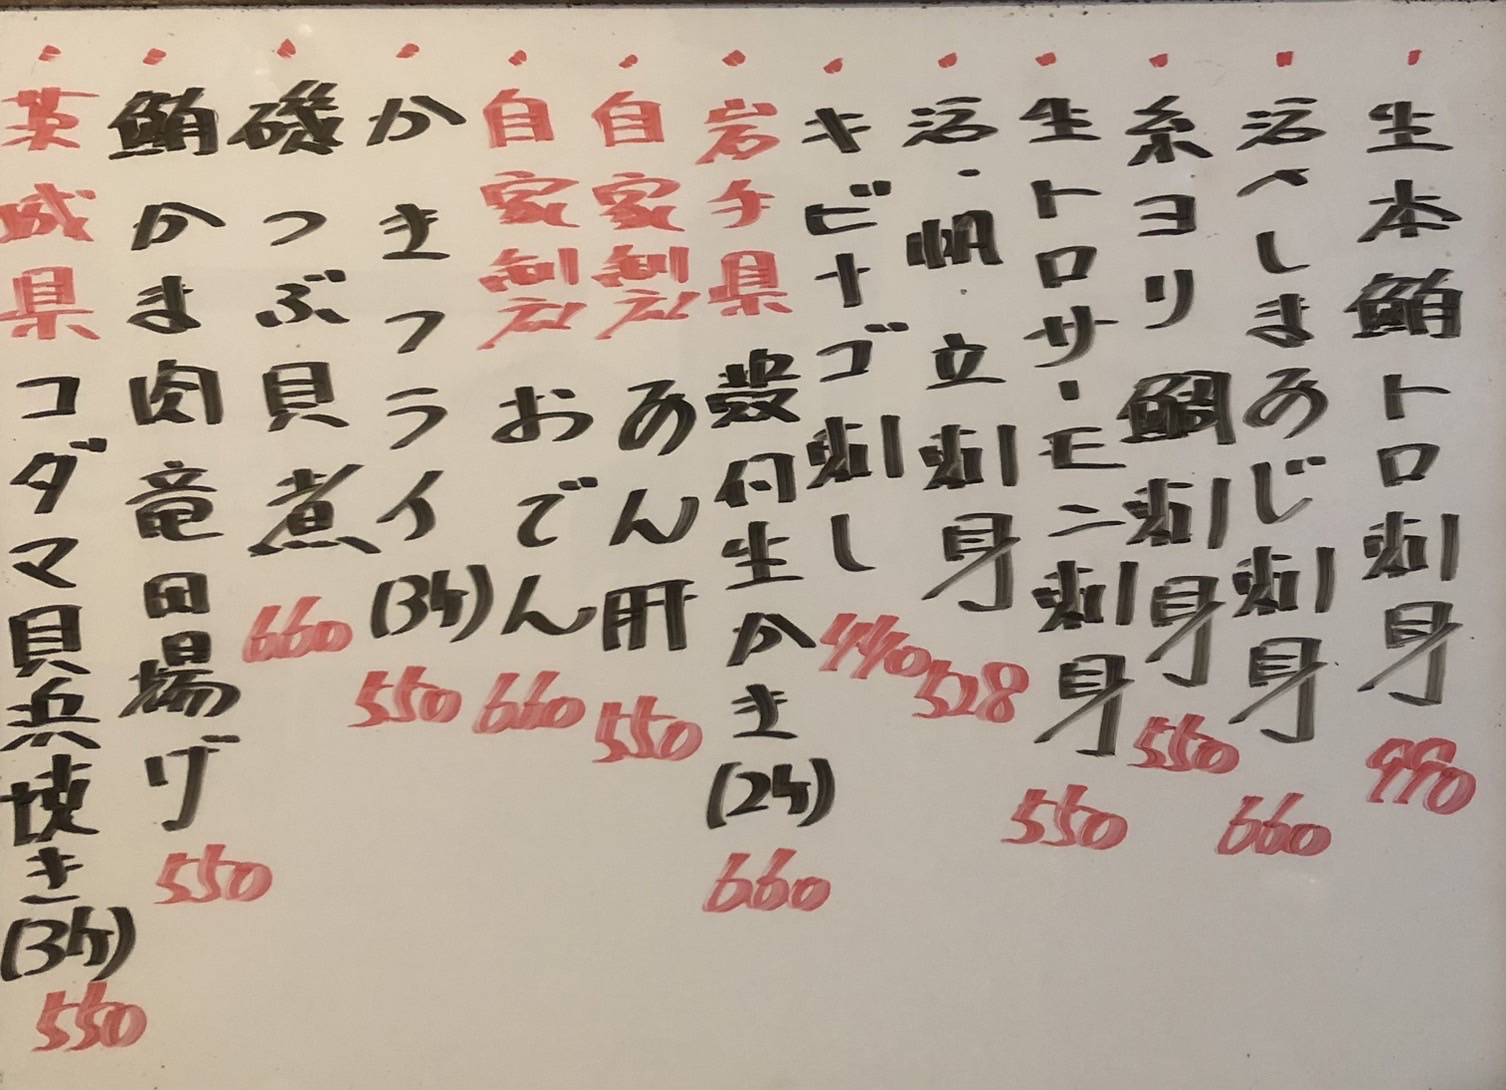 ・生本鮪トロ刺身 990
・活〆しまあじ刺身 660
・糸ヨリ鯛刺身 550
・生トロサーモン刺身 550
・活・帆・立刺身 528
・キビナゴ刺し 440
・岩手県 殻付生かき(2ケ) 660
・自家製 あん肝 550
・自家製 おでん 660
・かきフライ(3ケ) 550
・磯つぶ貝煮 660
・鮪かま肉竜田揚げ 550
・茨城県 コダマ貝浜焼き(3ケ) 550